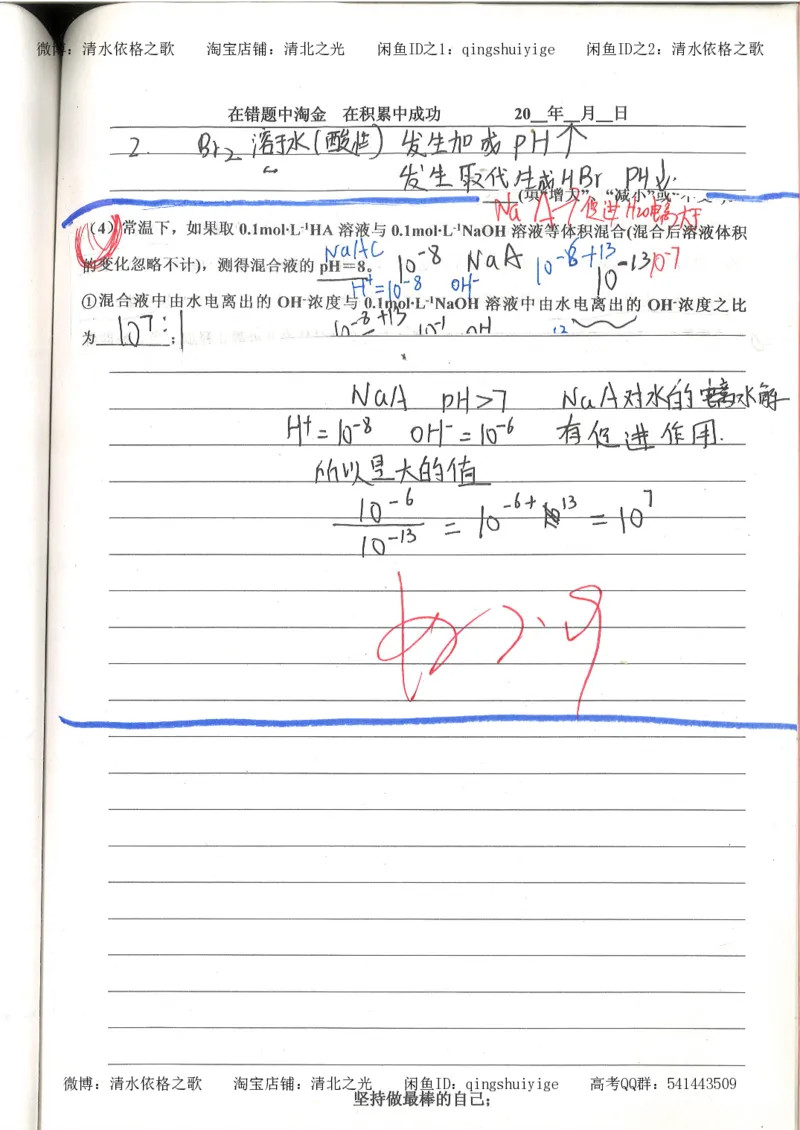 微博：清水依格之歌 淘宝店铺：清北之光 闲鱼ID之1：qingshuiyige 闲鱼ID之2：清水依格之歌
在错题中淘金 在积累中成功 20__年__月__日
2. Br₂ 溶于水(酸性) 发生加成 pH↑
发生取代生成HBr PH↓
(填“增大”、“减小”或“
Na A→促进H2O电离大于
(4) 常温下，如果取 0.1mol·L⁻¹HA 溶液与 0.1mol·L⁻¹NaOH 溶液等体积混合(混合后溶液体积
NaAC 10⁻⁸ NaA 10⁻⁸⁺¹³ 10⁻¹³ 10⁻⁷
的变化忽略不计)，测得混合液的 pH＝8。
H⁺=10⁻⁸ OH⁻
①混合液中由水电离出的 OH⁻浓度与 0.1mol·L⁻¹NaOH 溶液中由水电离出的 OH⁻浓度之比
为 10⁷:1 ；
10⁻⁸⁺¹³ 10⁻¹ OH
NaA pH>7 NaA对水的电离水解
H⁺=10⁻⁸ OH⁻=10⁻⁶ 有促进作用.
所以是大的值
10⁻⁶/10⁻¹³ = 10⁻⁶⁺¹³ = 10⁷
微博：清水依格之歌 淘宝店铺：清北之光 闲鱼ID：qingshuiyige 高考QQ群：541443509
坚持做最棒的自己；